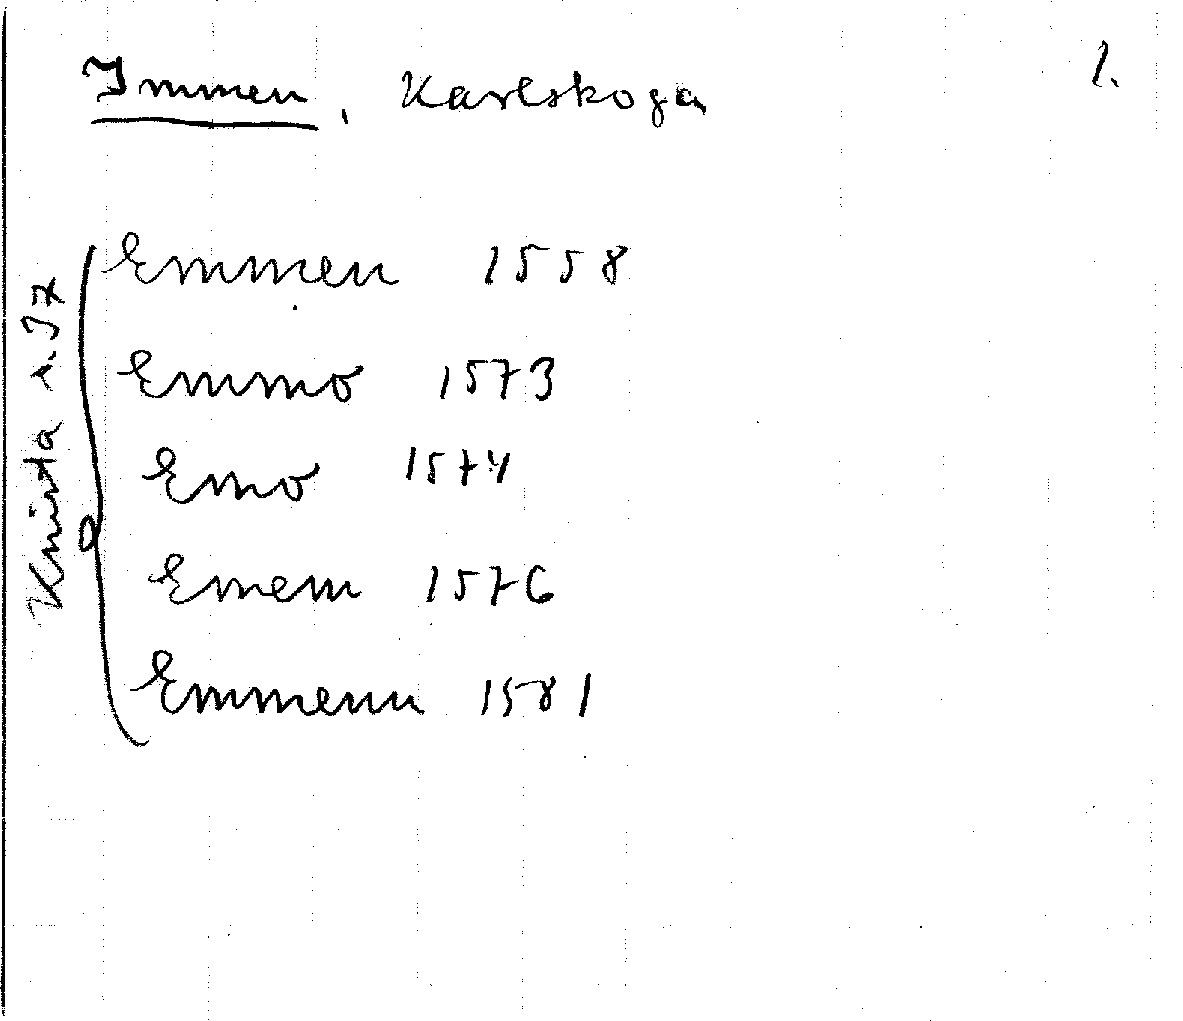 Immen, Karlskoga
1.
Emmen 1558
Emmo 1573
Emo 1574
Emem 1576
Emmenn 1581
Knista s. 37